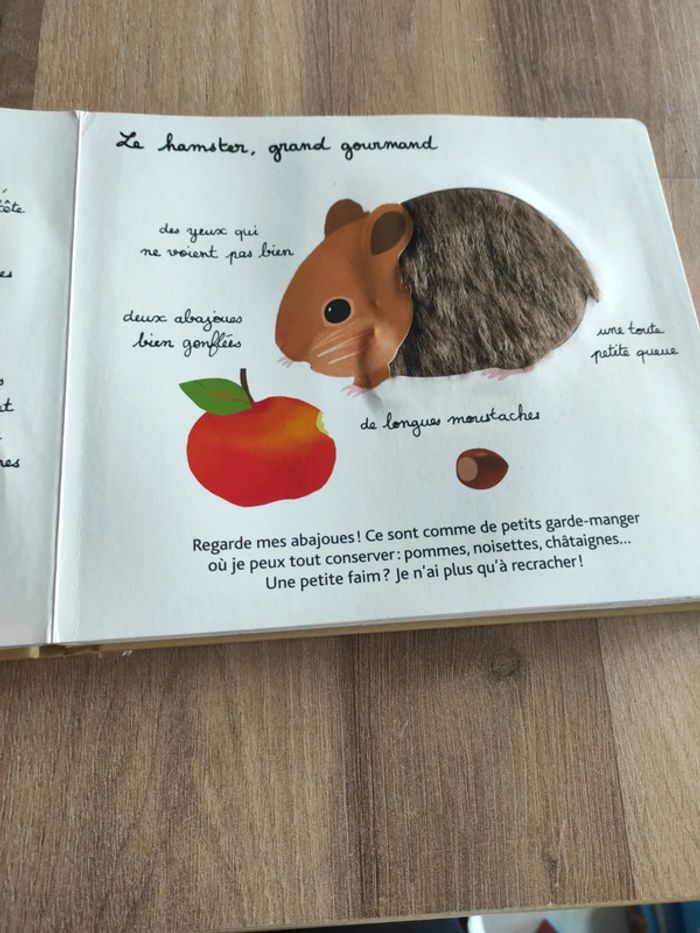 Le hamster, grand gourmand
des yeux qui
ne voient pas bien
deux abajoues
bien gonflées
une toute
petite queue
de longues moustaches
Regarde mes abajoues! Ce sont comme de petits garde-manger
où je peux tout conserver: pommes, noisettes, châtaignes...
Une petite faim? Je n'ai plus qu'à recracher!